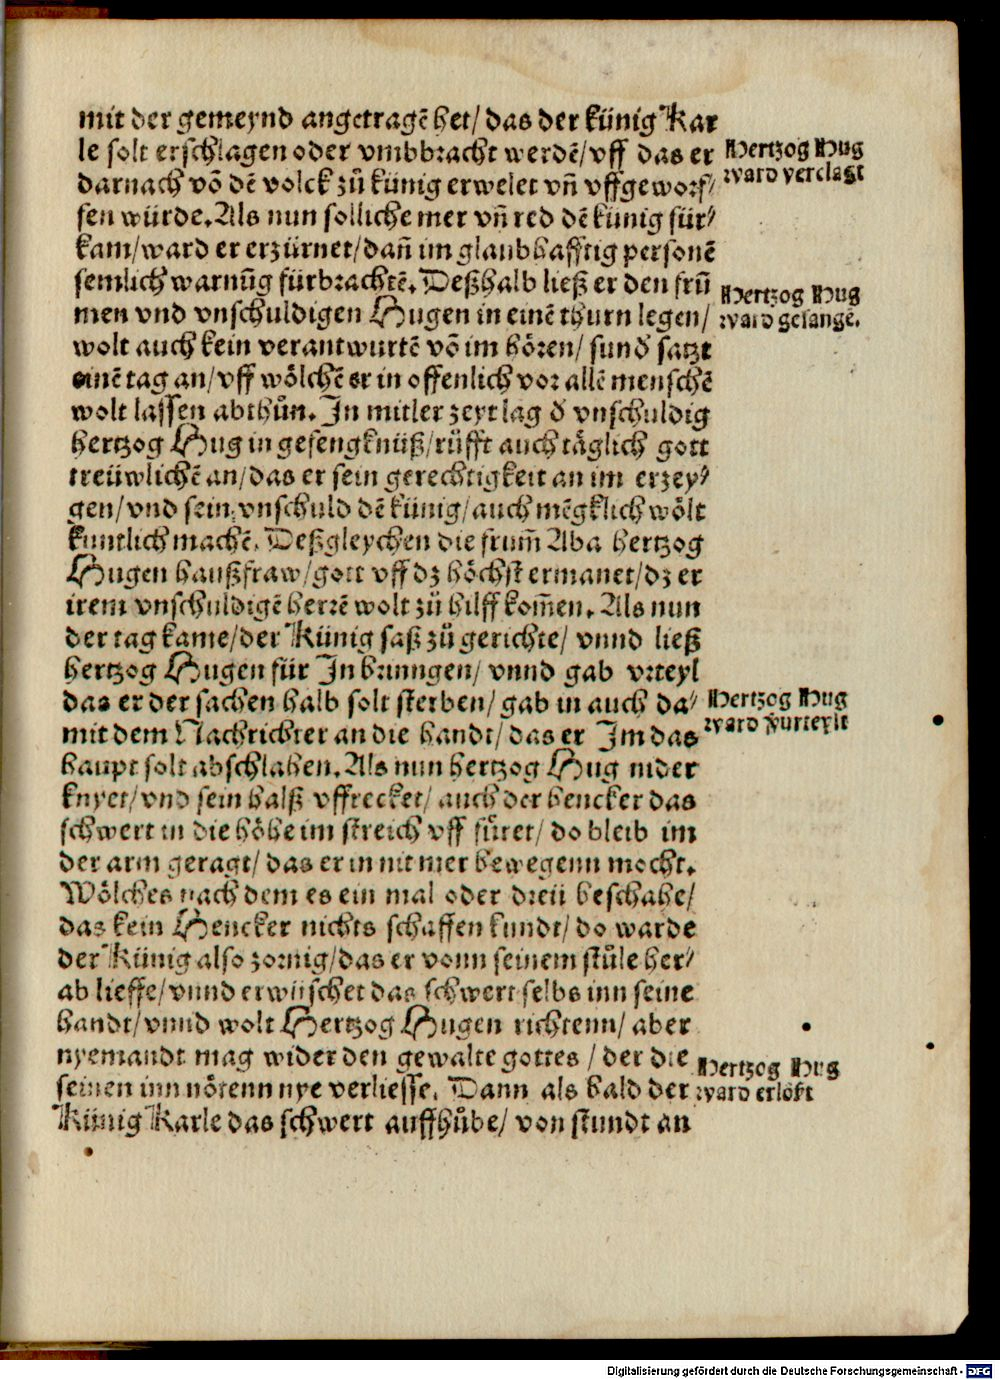 mit der gemeynd angetragẽ het/ das der künig Kar
le solt erschlagen oder vmbbracht werdẽ/ vff das er
darnach võ dẽ volck zů künig erwelet vñ vffgeworf⸗
fen würde. Als nun solliche mer vñ red dẽ künig für⸗
kam/ ward er erzürnet/ dañ im glaubhafftig personẽ
semlich warnũg fürbrachtẽ. Deßhalb ließ er den frũ
men vnd vnschuldigen Hugen in einẽ thurn legen/
wolt auch kein verantwurtẽ võ im hören/ sund̕ satzt
einẽ tag an/ vff wölchẽ er in offenlich vor allẽ menschẽ
wolt lassen abthůn. In mitler zeyt lag d̕ vnschuldig
hertzog Hug in gefengknüß/ růfft auch täglich gott
treüwlichẽ an/ das er sein gerechtigkeit an im erzey⸗
gen/ vnd sein vnschuld dẽ künig/ auch mẽgklich wölt
kuntlich machẽ. Deßgleychen die frum̃ Aba hertzog
Hugen haußfraw/ gott vff dz höchst ermanet/ dz er
irem vnschuldigẽ herrẽ wolt zů hilff kom̃en. Als nun
der tag kame/ der Künig saß zů gerichte/ vnnd ließ
hertzog Hugen für In bringen/ vnnd gab vrteyl
das er der sachen halb solt sterben/ gab in auch da⸗
mit dem Nachrichter an die handt/ das er Im das
haupt solt abschlahen. Als nun hertzog Hug nider
knyet/ vnd sein halß vffrecket/ auch der hencker das
schwert in die höhe im streich vff fůret/ do bleib im
der arm geragt/ das er in nit mer bewegenn mocht.
Wölches nach dem es ein mal oder dreü beschahe/
das kein Hencker nichts schaffen kundt/ do warde
der Künig also zornig/ das er vonn seinem stůle her⸗
ab lieffe/ vnnd erwüschet das schwert selbs inn seine
handt/ vnnd wolt Hertzog Hugen richtenn/ aber
nyemandt mag wider den gewalte gottes / der die
seinen inn nötenn nye verliesse. Dann als bald der
Künig Karle das schwert auffhůbe/ von stundt an
Hertzog Hug
ward verclagt
Hertzog Hug
ward gefangẽ.
Hertzog Hug
ward vurteylt
Hertzog Hug
ward erlößt
Digitalisierung gefördert durch die Deutsche Forschungsgemeinschaft - DFG